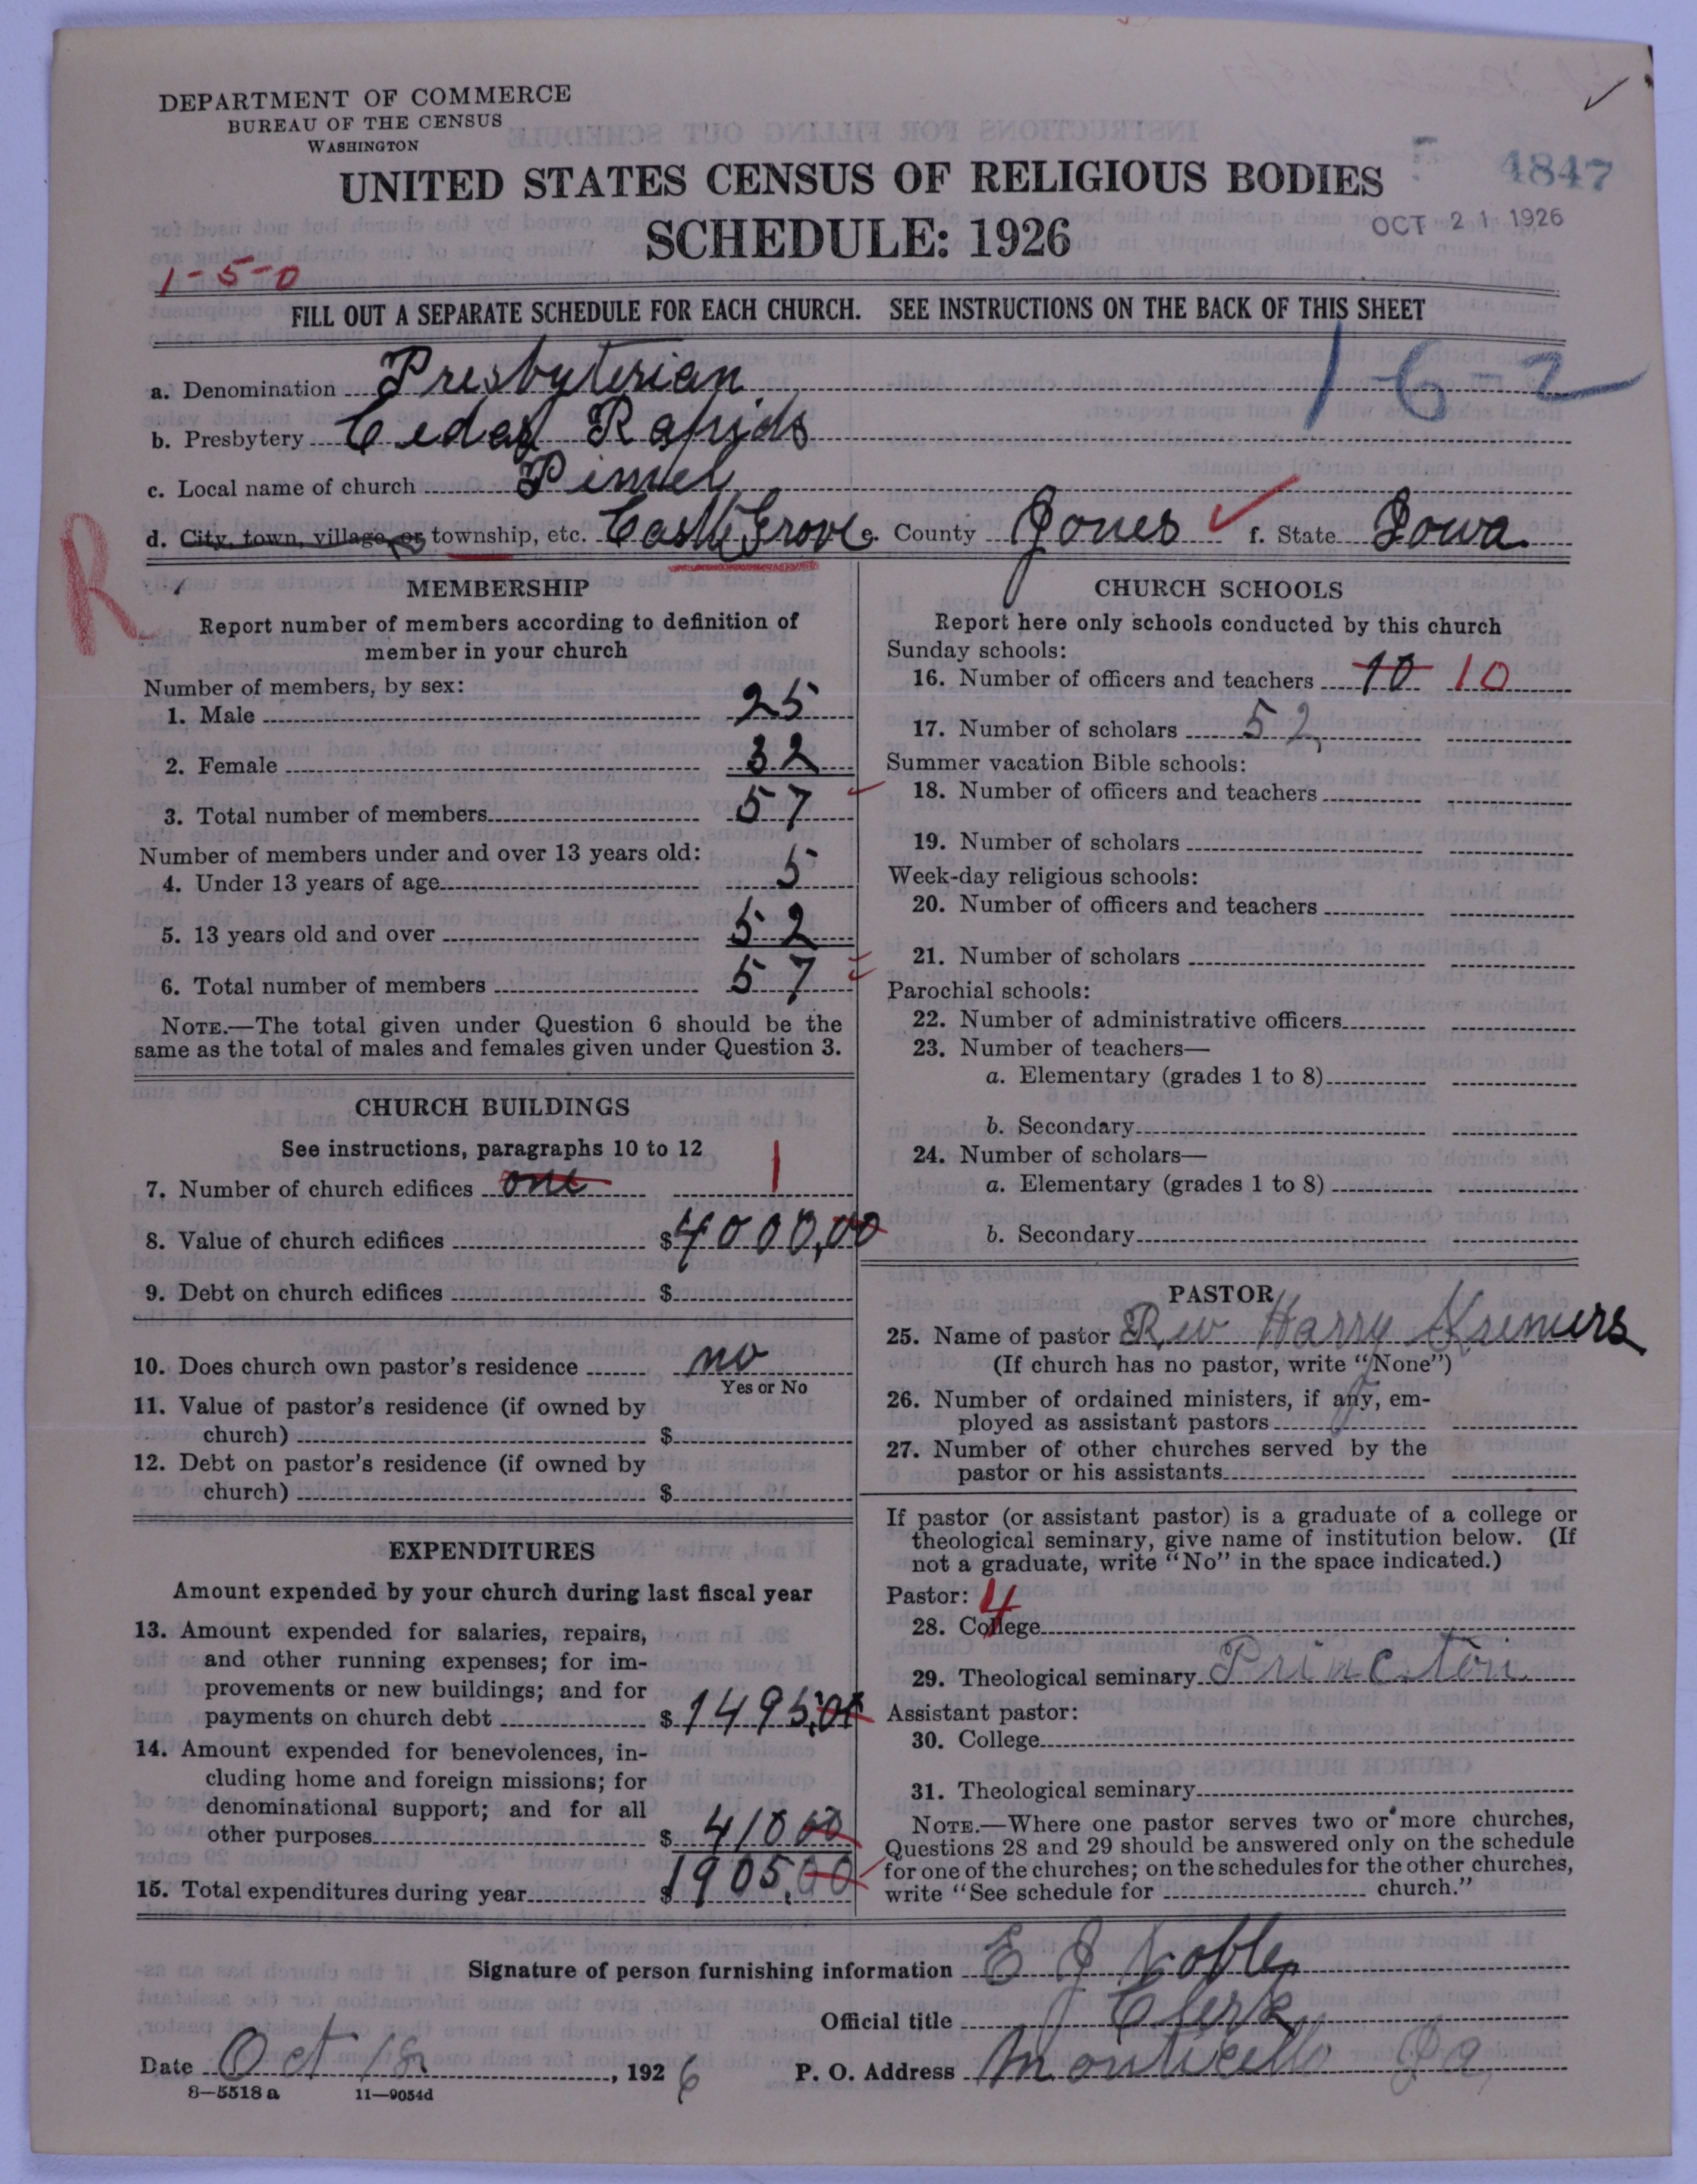 DEPARTMENT OF COMMERCE
BUREAU OF THE CENSUS
WASHINGTON
UNITED STATES CENSUS OF RELIGIOUS BODIES
4847
SCHEDULE: 1926
OCT 21 1926
1-5-0
FILL OUT A SEPARATE SCHEDULE FOR EACH CHURCH. SEE INSTRUCTIONS ON THE BACK OF THIS SHEET
1-6-2
a. Denomination Presbyterian
b. Presbytery Cedar Rapids
c. Local name of church
d. City, town, village, or township, etc. Castle Grove e. County Jones f. State Iowa
R
MEMBERSHIP
Report number of members according to definition of
member in your church
Number of members, by sex:
1. Male 25
2. Female 32
3. Total number of members 57
Number of members under and over 13 years old:
4. Under 13 years of age 5
5. 13 years old and over 52
6. Total number of members 57
NOTE.—The total given under Question 6 should be the
same as the total of males and females given under Question 3.
CHURCH BUILDINGS
See instructions, paragraphs 10 to 12
7. Number of church edifices one 1
8. Value of church edifices $4000,00
9. Debt on church edifices $
10. Does church own pastor's residence no
Yes or No
11. Value of pastor's residence (if owned by
church) $
12. Debt on pastor's residence (if owned by
church) $
EXPENDITURES
Amount expended by your church during last fiscal year
13. Amount expended for salaries, repairs,
and other running expenses; for im-
provements or new buildings; and for
payments on church debt $1495,00
14. Amount expended for benevolences, in-
cluding home and foreign missions; for
denominational support; and for all
other purposes $ 410 00
15. Total expenditures during year $1905,00
CHURCH SCHOOLS
Report here only schools conducted by this church
Sunday schools:
16. Number of officers and teachers 10 10
17. Number of scholars 52
Summer vacation Bible schools:
18. Number of officers and teachers
19. Number of scholars
Week-day religious schools:
20. Number of officers and teachers
21. Number of scholars
Parochial schools:
22. Number of administrative officers
23. Number of teachers—
a. Elementary (grades 1 to 8)
b. Secondary
24. Number of scholars—
a. Elementary (grades 1 to 8)
b. Secondary
PASTOR
25. Name of pastor Rev Harry Kremers
(If church has no pastor, write "None")
26. Number of ordained ministers, if any, em-
ployed as assistant pastors
27. Number of other churches served by the
pastor or his assistants
If pastor (or assistant pastor) is a graduate of a college or
theological seminary, give name of institution below. (If
not a graduate, write "No" in the space indicated.)
Pastor: 4
28. College
29. Theological seminary Princeton
Assistant pastor:
30. College
31. Theological seminary
NOTE.—Where one pastor serves two or more churches,
Questions 28 and 29 should be answered only on the schedule
for one of the churches; on the schedules for the other churches,
write "See schedule for church."
Signature of person furnishing information E J Noble
Official title Clerk
Date Oct 18, 1926 P. O. Address Monticello Ia,
8—5518 a 11—9054d